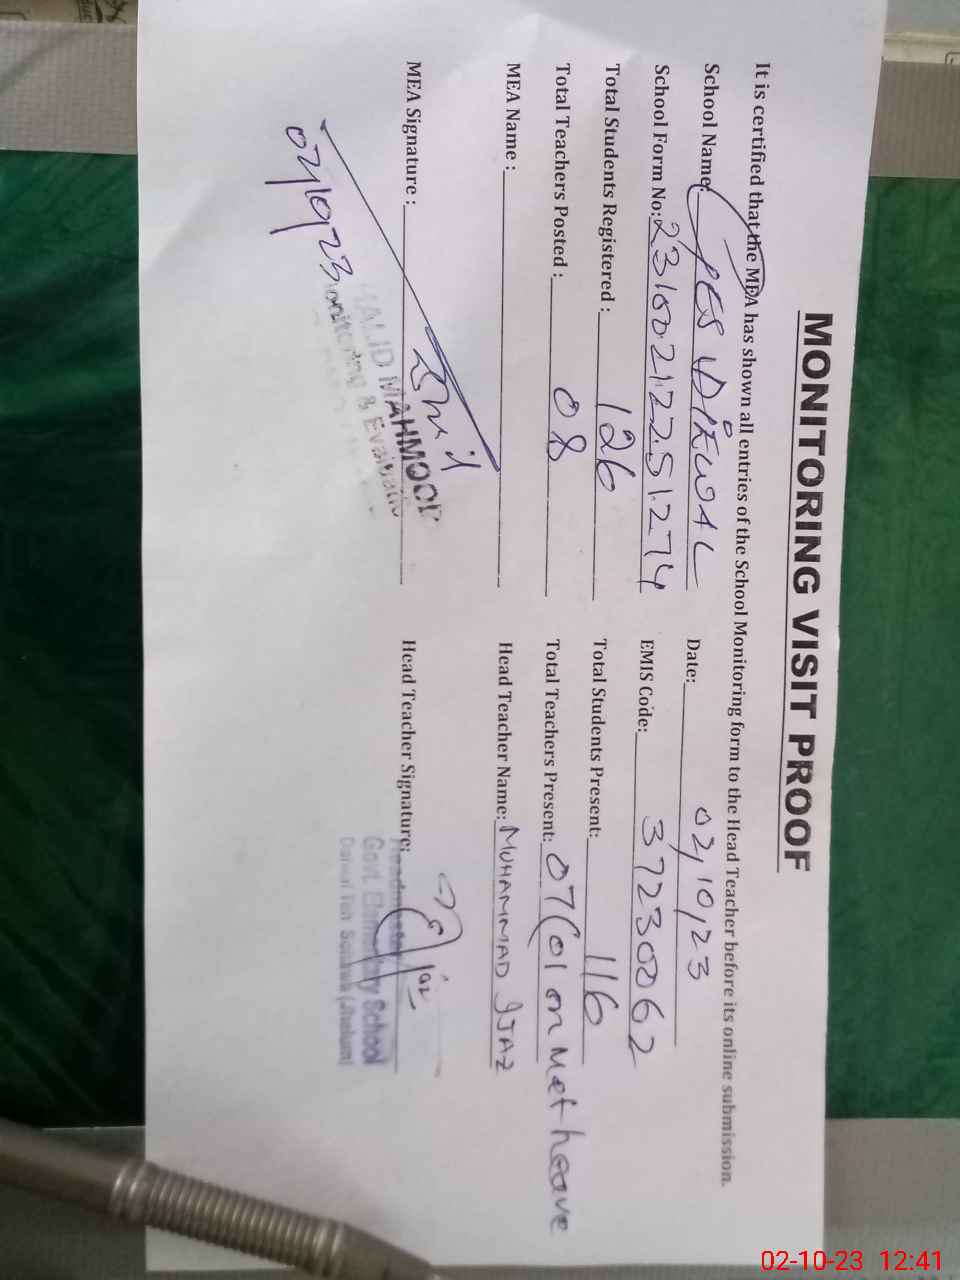 MONITORING VISIT PROOF
It is certified that the MEA has shown all entries of the School Monitoring form to the Head Teacher before its online submission.
School Name: GES DIEWAL Date: 02/10/23
School Form No: 23100212251274 EMIS Code: 37230062
Total Students Registered : 126 Total Students Present: 116
Total Teachers Posted : 08 Total Teachers Present: 07 (01 on Met- heave
MEA Name : Head Teacher Name: MUHAMMAD IJAZ
MEA Signature : Head Teacher Signature:
KHALID MAHMOOD
Monitoring & Evaluation
02/10/23
Headmaster
Govt. Elementary School
(Jhelum)
02-10-23 12:41